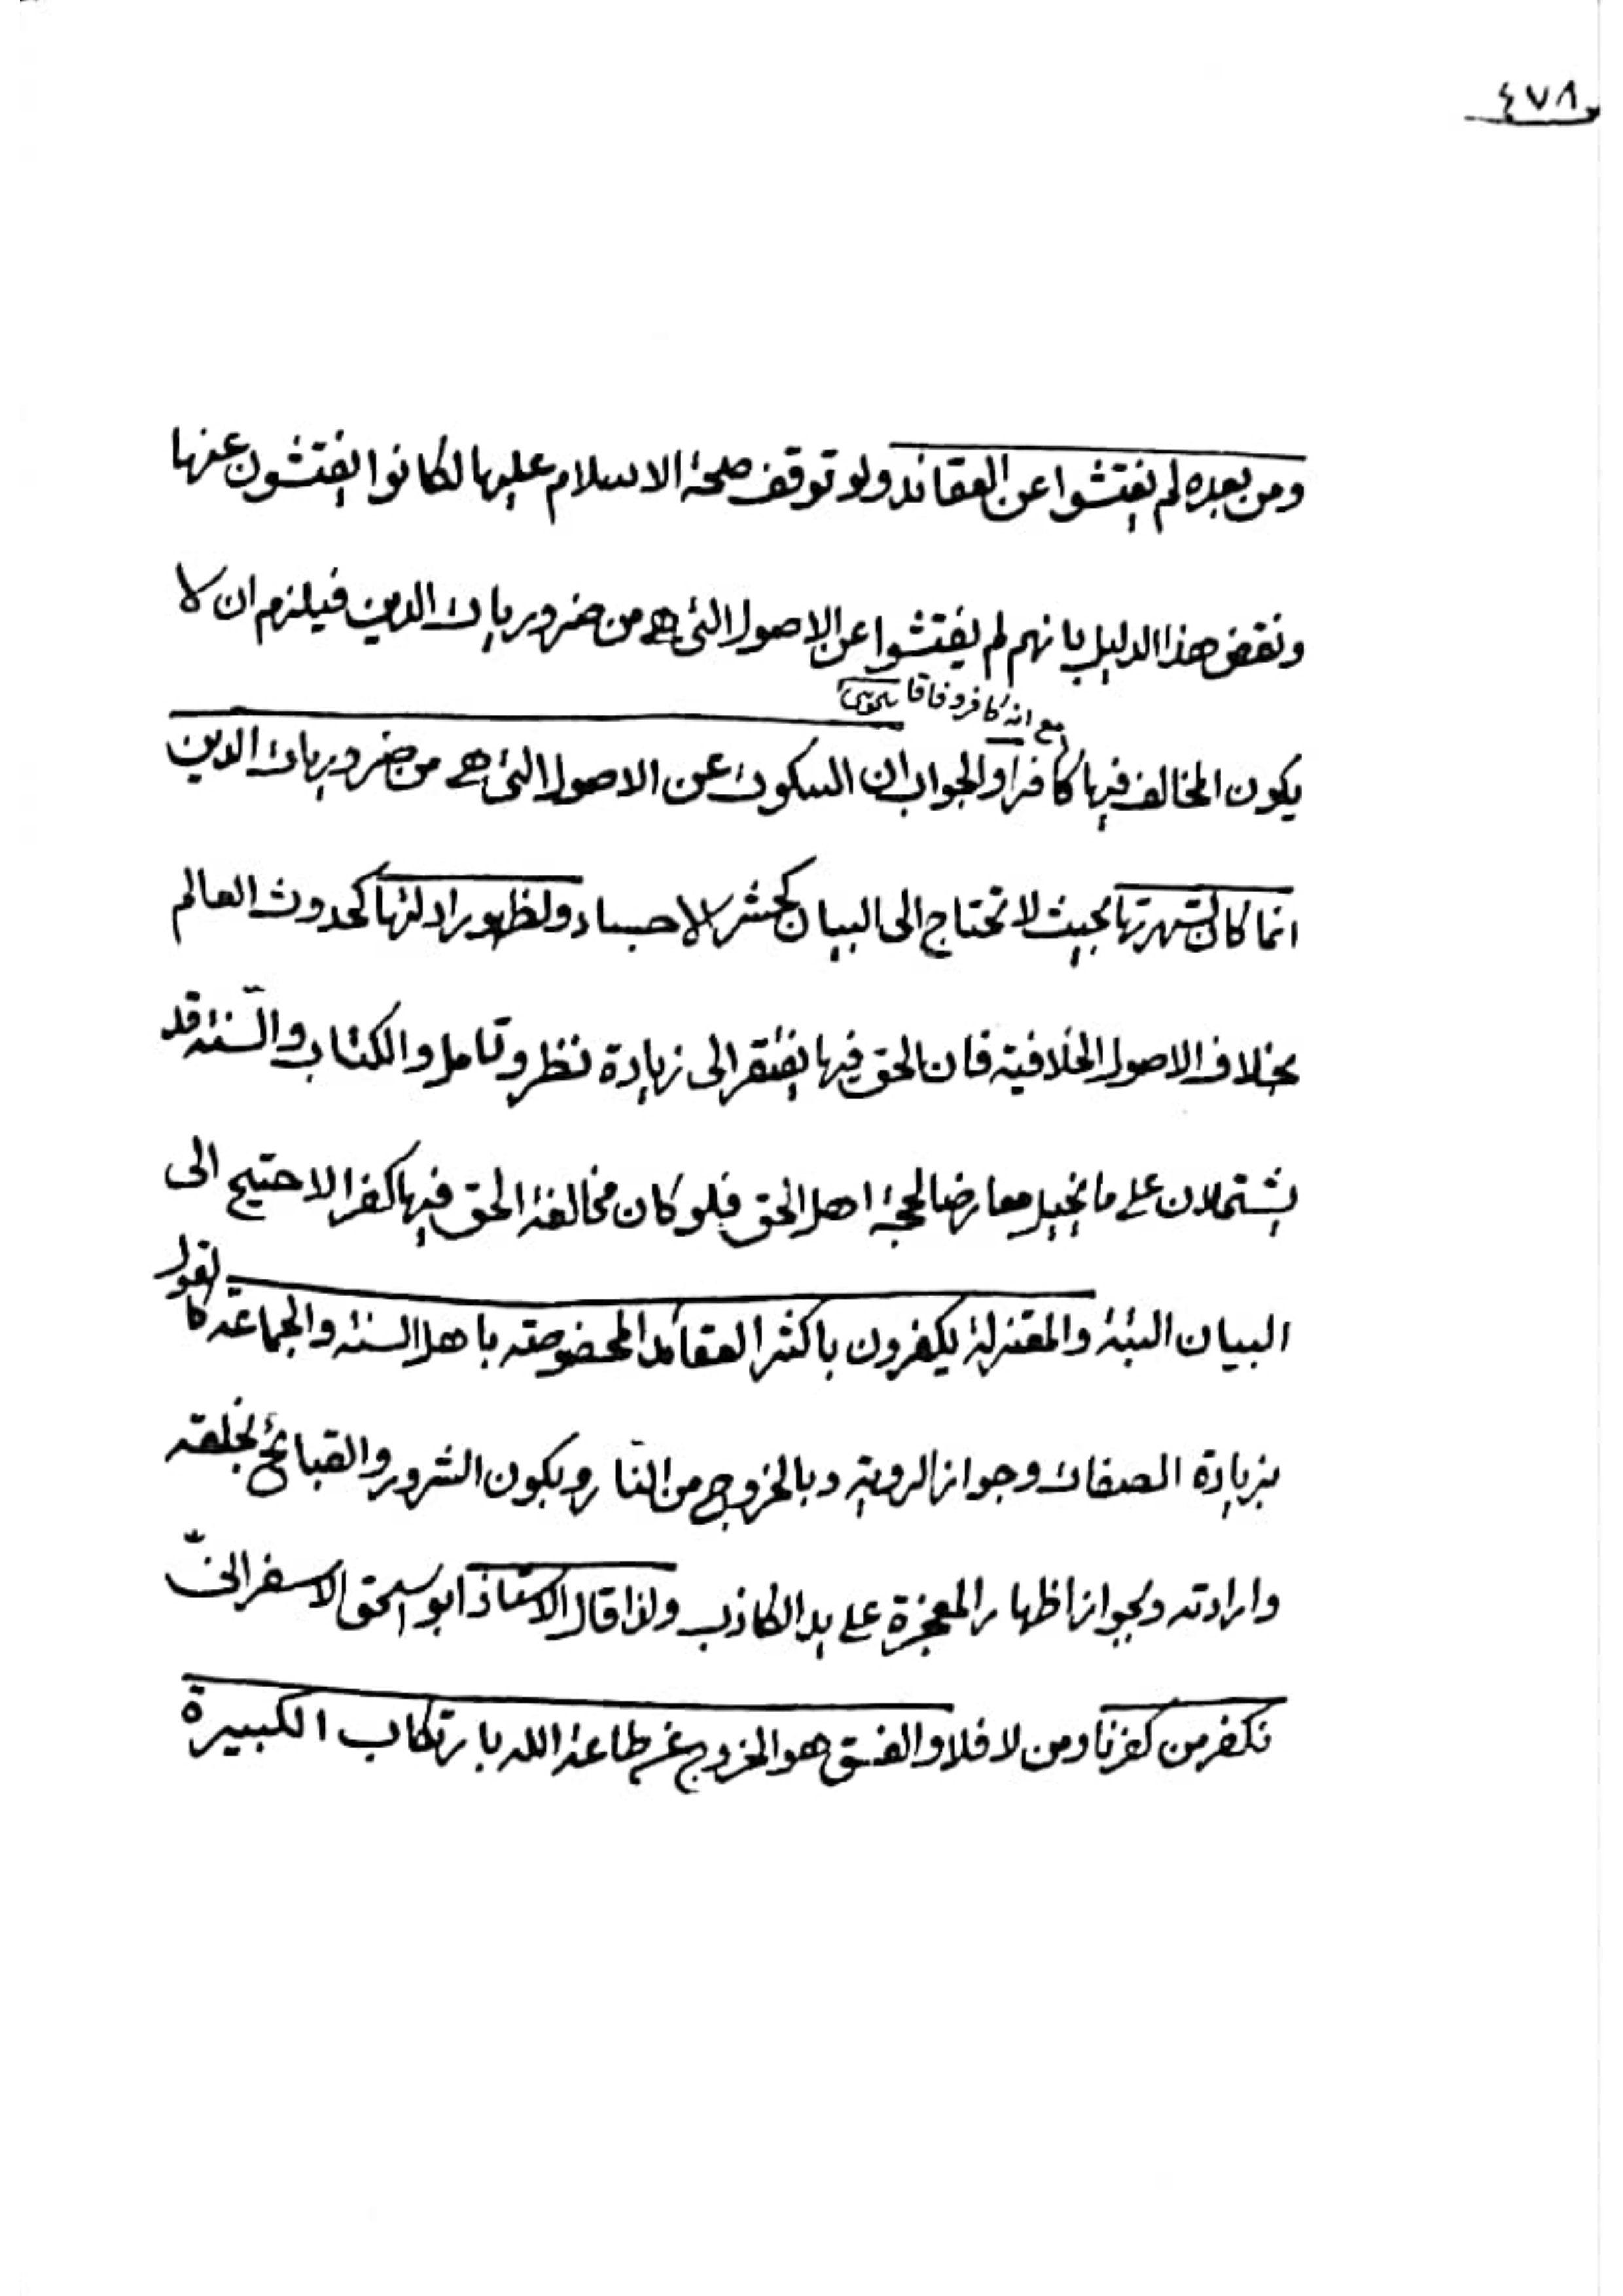 ص ٤٧٨
ومن بعده لم يفتشوا عن العقائد ولو توقف صحة الاسلام عليها لكانوا يفتشون عنها
ونقض هذا الدليل بانهم لم يفتشوا عن الاصول التي هي من ضروريات الدين فيلزم ان لا
مع انه كافر وفاقا
يكون المخالف فيها كافرا والجواب ان السكوت عن الاصول التي هي من ضروريات الدين
انما كان لشهرتها بحيث لا تحتاج الى البيان كحشر الاجساد ولظهور ادلتها كحدوث العالم
بخلاف الاصول الخلافية فان الحق فيها يفتقر الى زيادة نظر وتامل والكتاب والسّنة قد
يشتملان على ما يخيل معارضا لحجة اهل الحق فلو كان مخالفة الحق فيها كفرا لاحتيج الى
البيان البتة والمعتزلة يكفرون باكثر العقائد المخصوصة باهل السنة والجماعة كالقول
بزيادة الصفات وجواز الروية وبالخروج من النّار وبكون الشرور والقبائح بخلقه
وارادته وبجواز اظهار المعجزة على يد الكاذب ولذا قال الاستاذ ابو اسحق الاسفرائنيّ
نكفر من كفرنا ومن لا فلا والفسق هو الخروج عن طاعة الله بارتكاب الكبيرة